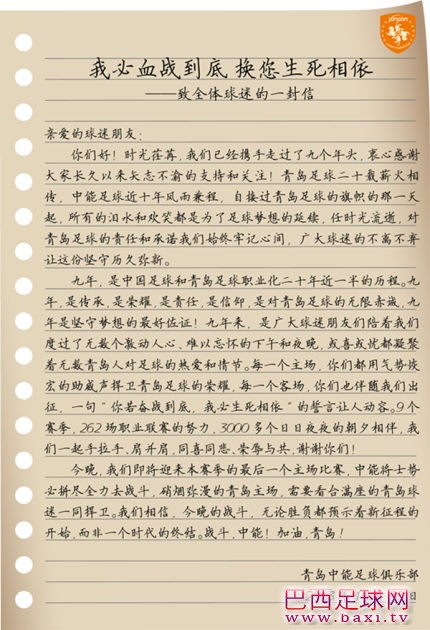 我必血战到底 换您生死相依
——致全体球迷的一封信
亲爱的球迷朋友：
你们好！时光荏苒，我们已经携手走过了九个年头，衷心感谢
大家长久以来矢志不渝的支持和关注！青岛足球二十载薪火相
传，中能足球近十年风雨兼程，自接过青岛足球的旗帜的那一天
起，所有的泪水和欢笑都是为了足球梦想的延续，任时光流逝，对
青岛足球的责任和承诺我们始终牢记心间，广大球迷的不离不弃
让这份坚守历久弥新。
九年，是中国足球和青岛足球职业化二十年近一半的历程。九
年，是传承，是荣耀，是责任，是信仰，是对青岛足球的无限赤诚，九
年是坚守梦想的最好佐证！九年来，是广大球迷朋友们陪着我们
度过了无数个激动人心、难以忘怀的下午和夜晚，或喜或忧都凝聚
着无数青岛人对足球的热爱和情节。每一个主场，你们都用气势恢
宏的助威声捍卫青岛足球的荣耀，每一个客场，你们也伴随我们出
征，一句“你若奋战到底，我必生死相依”的誓言让人动容。9个
赛季，262场职业联赛的努力，3000多个日日夜夜的朝夕相伴，我
们一起手拉手、肩并肩，同喜同悲、荣辱与共，谢谢你们！
今晚，我们即将迎来本赛季的最后一个主场比赛，中能将士势
必拼尽全力去战斗，硝烟弥漫的青岛主场，需要看台满座的青岛球
迷一同捍卫。我们相信，今晚的战斗，无论胜负都预示着新征程的
开始，而非一个时代的终结。战斗，中能！加油，青岛！
青岛中能足球俱乐部
日
巴西足球网
www.baxi.tv